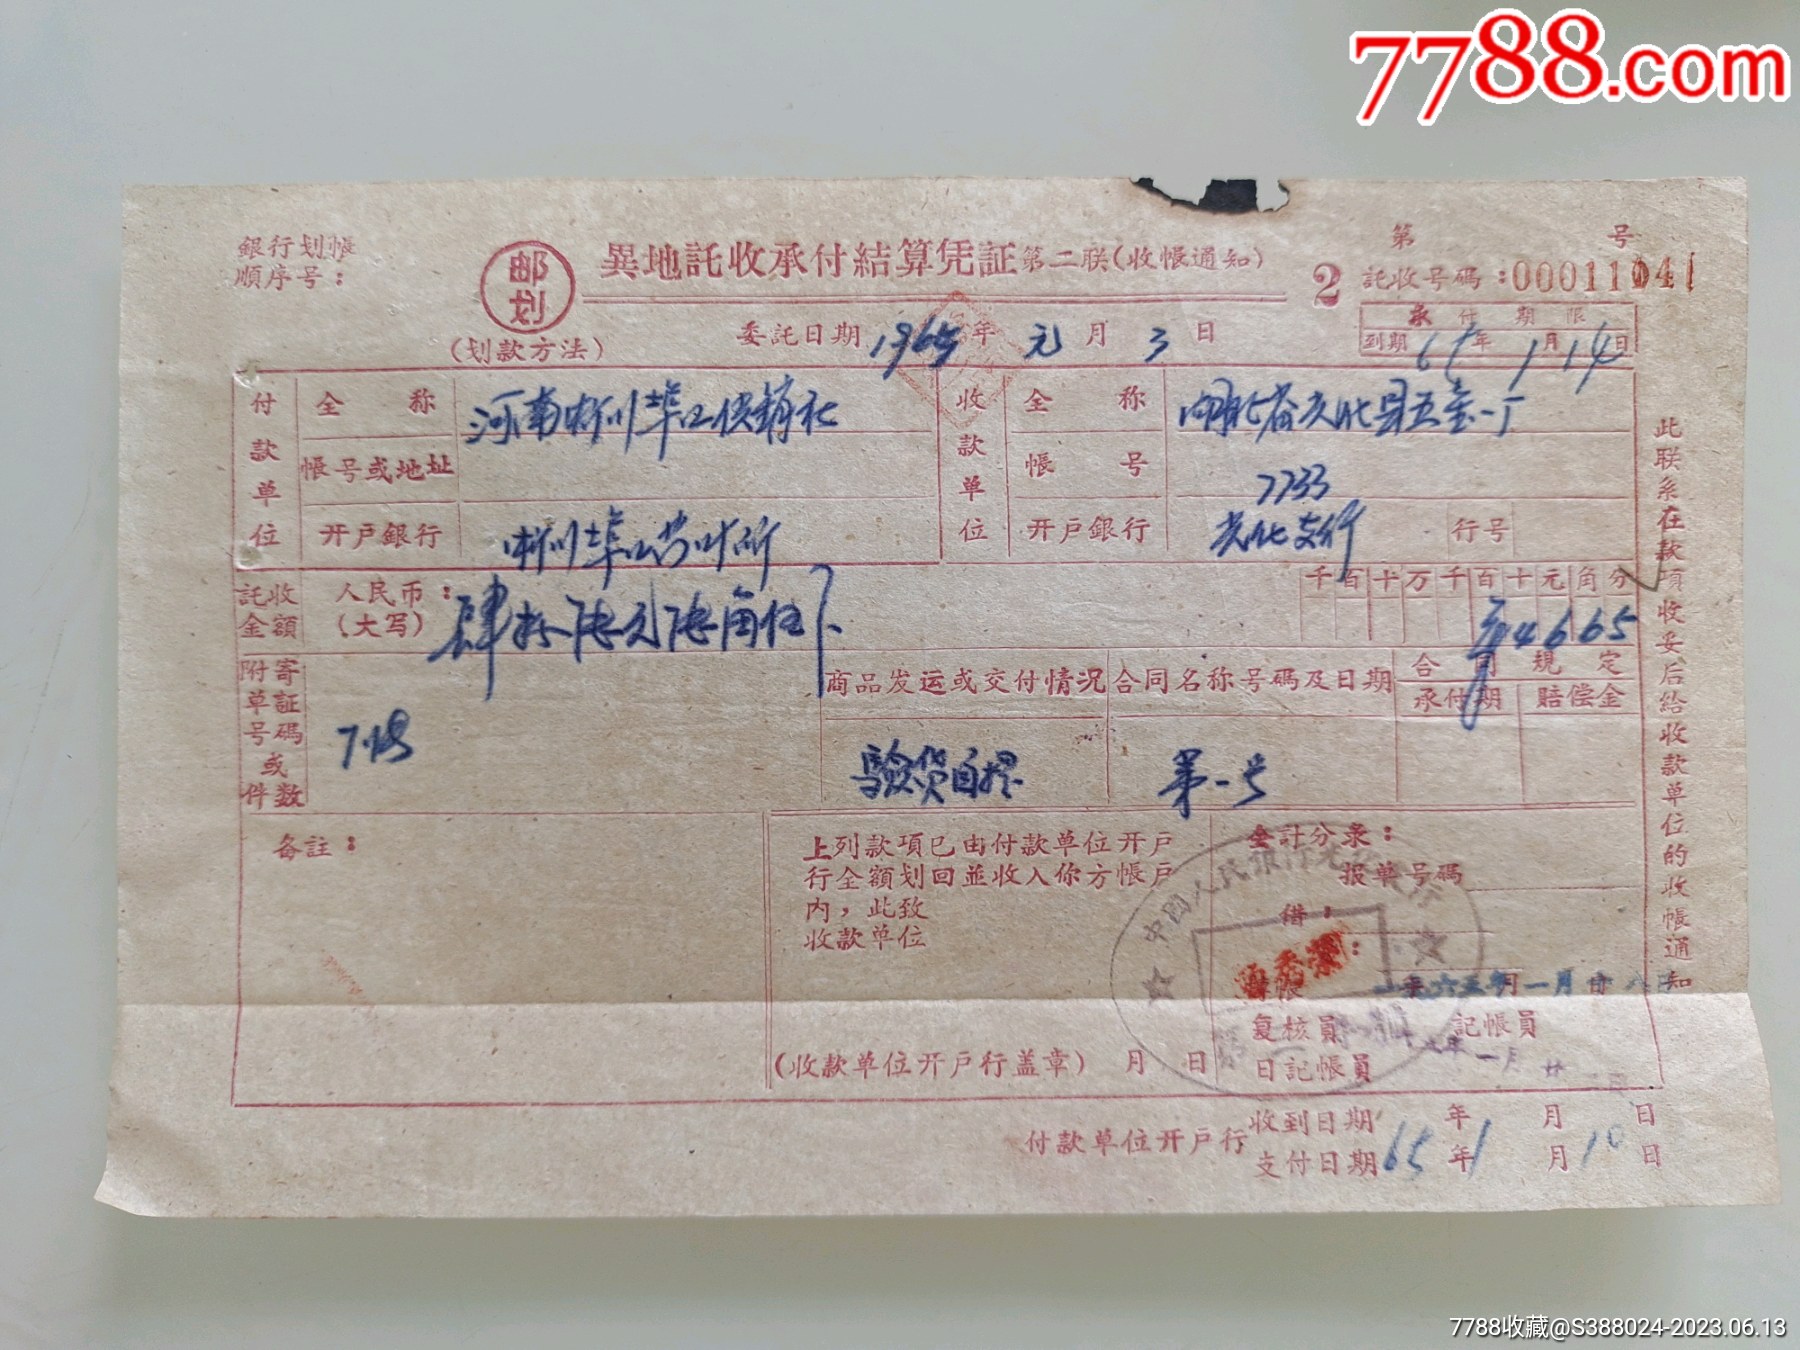 7788.com
銀行划帳
順序号：
邮划
(划款方法)
異地託收承付結算凭証 第二联(收帳通知)
2
第 号
託收号码：00011041
承付期限
到期 65年1月14日
委託日期 1965年 元月 3日
付款单位
全称 河南淅川埠口供銷社
帳号或地址
开戶銀行 淅川埠口营业所
收款单位
全称 湖北省光化县五金一厂
帳号 7733
开戶銀行 光化支行 行号
託收金額
人民币：(大写) 肆拾陆元陆角伍分
千百十万千百十元角分
4665
附寄单証号碼或件数
商品发运或交付情况
驗货自提
合同名称号碼及日期
第一号
合同規定
承付期
賠偿金
备註：
上列款項已由付款单位开戶
行全額划回並收入你方帳戶
內，此致
收款单位
(收款单位开戶行盖章) 月 日
会計分录：
报单号碼
借：
复核員 記帳員
日記帳員
付款单位开戶行
收到日期 年 月 日
支付日期 65年1月10日
此联系在款項收妥后給收款单位的收帳通知
7788收藏@S388024-2023.06.13